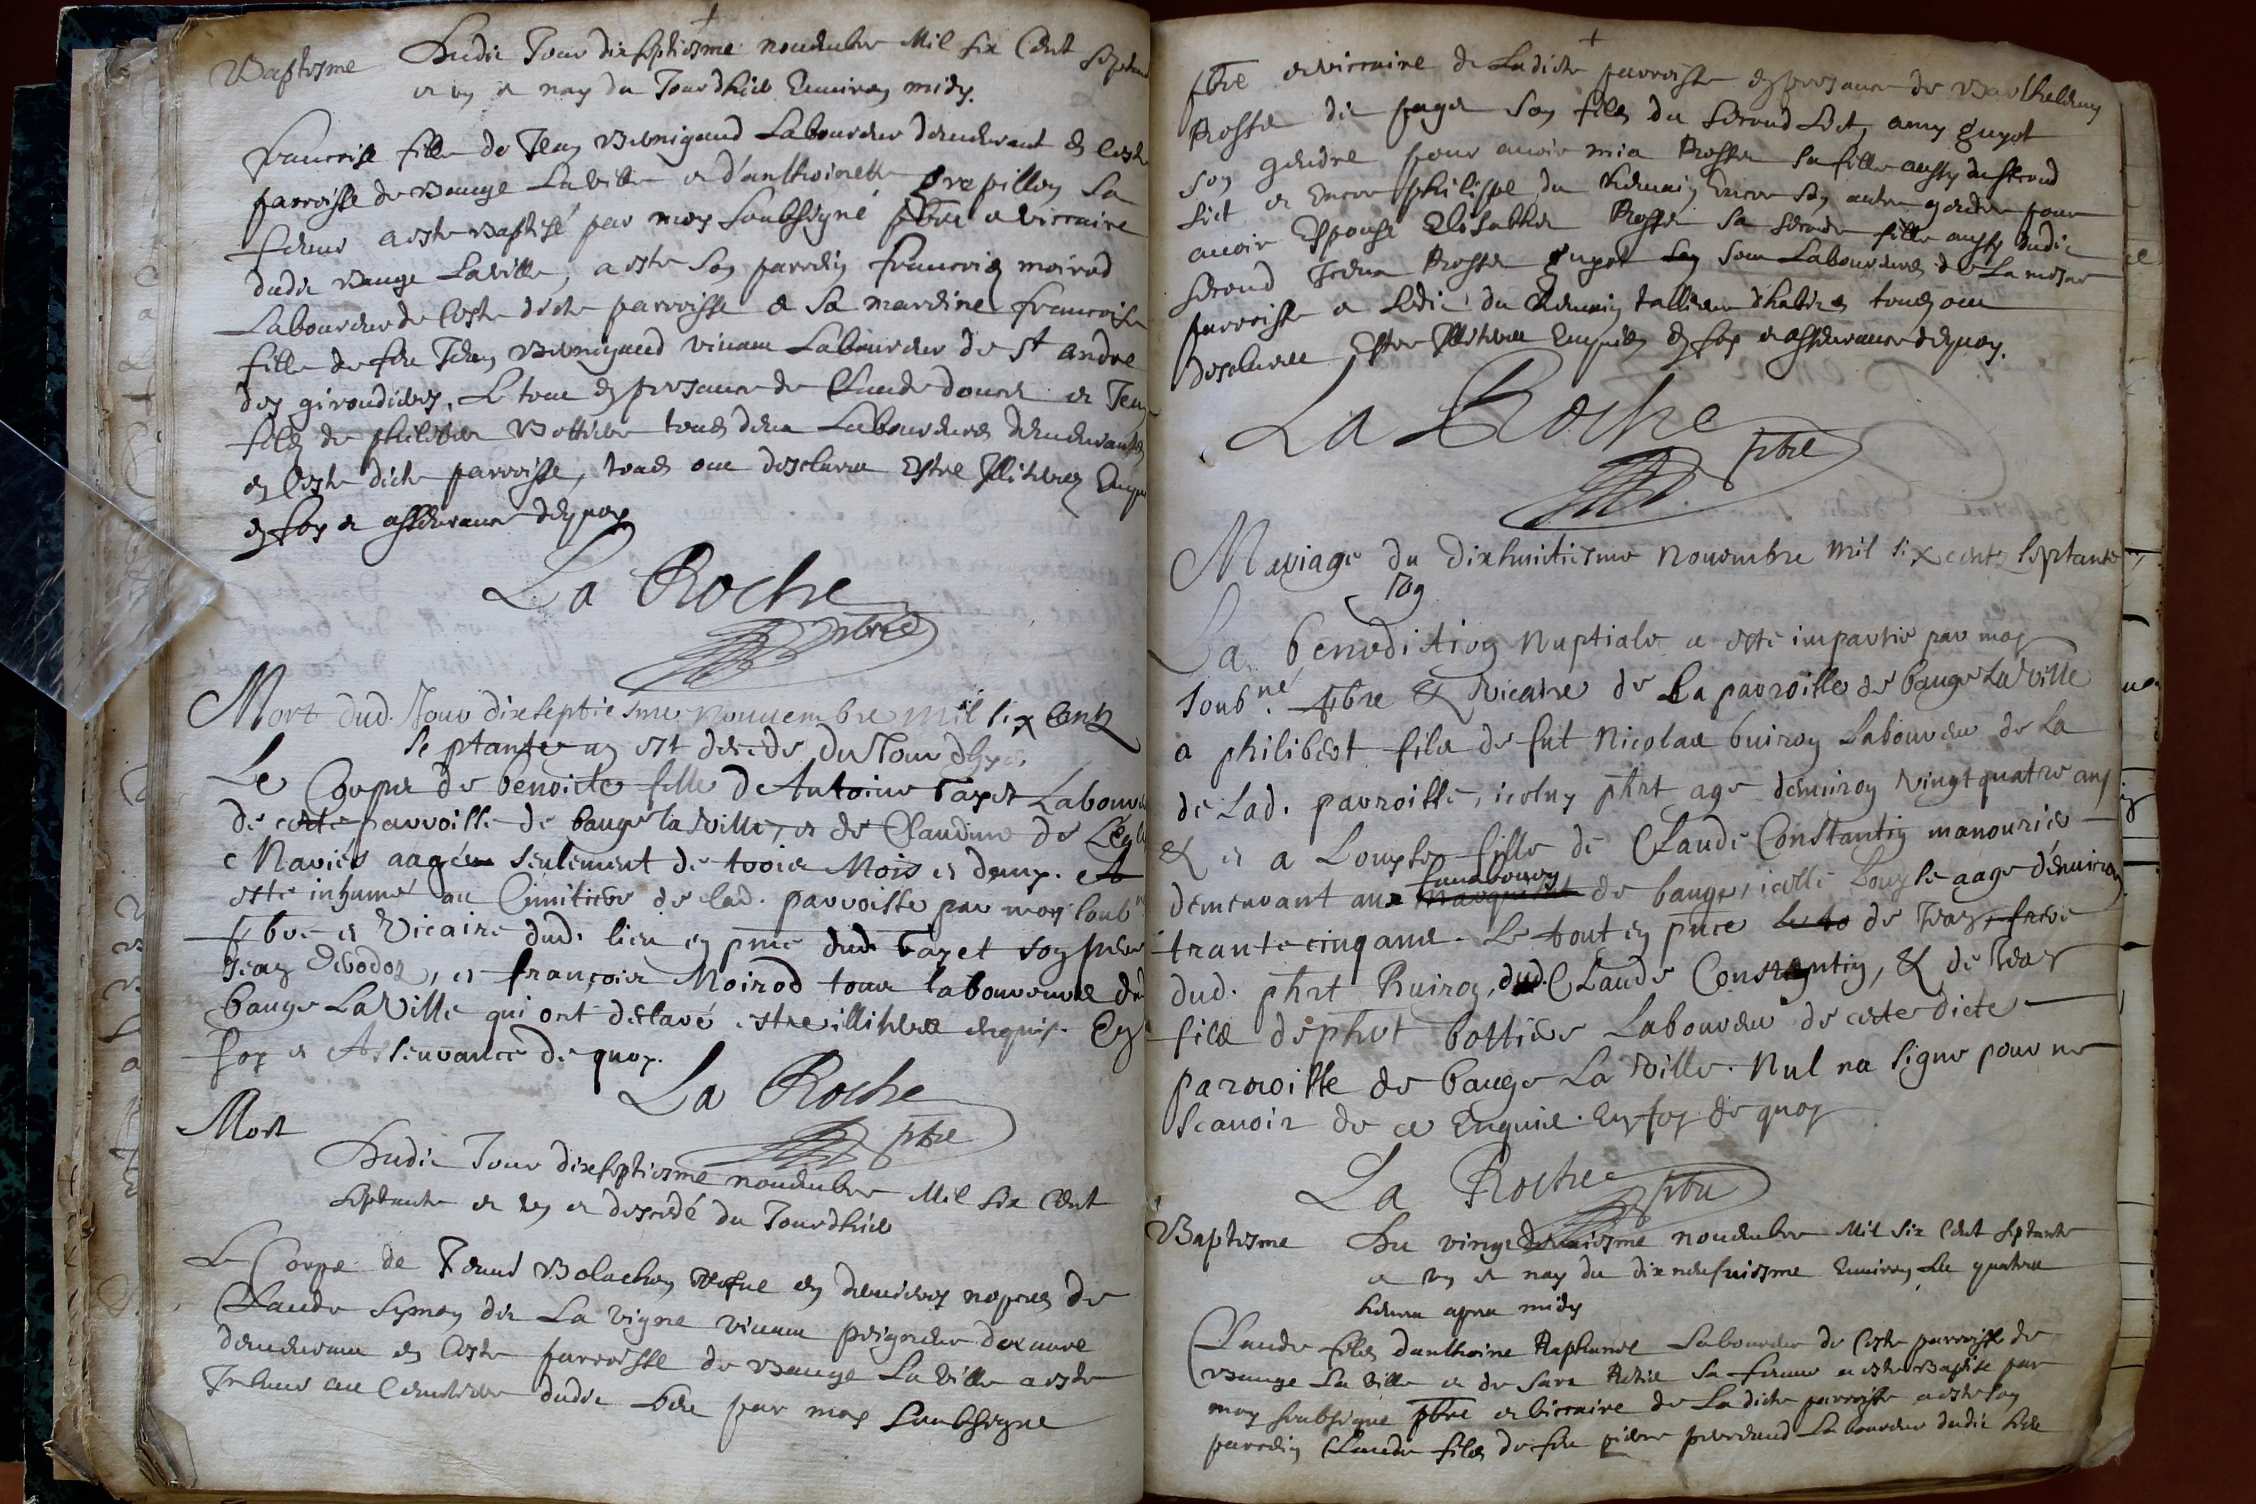 Baptesme Dudit Jour dixseptiesme nouembre Mil six Cent septante
et un et nay du Jourdhier Enuiron midy.
francoise fille de Jean Bernigaud Laboureur demeurant en Ceste
parroisse de Bauge La Ville et d'anthoinette grepillon sa
feme a este Baptisé par moy soubsigné pbre et viccaire
dudit Bauge La Ville, a este son parrein francois moirod
Laboureur de Ceste dicte parroisse et sa marreine francoise
fille de feu Jean Bernigaud viuant Laboureur de St andre
des giroudiers, Le tout en presance de Claude et Jean
fils de philiber Bottier tous deux Laboureurs demeurantz
en Ceste dicte parroisse, tous ont desclaree Estre Illiterez Enquis
en foy et asseurance dequoy
La Roche
pbre
Mort dud. Jour dixseptiesme nouuembre mil six Centz
septante un est decede du Jour dhyer
Le Corps de benoicte fille de Antoine Layet Laboureur
de ceste parroisse de bauge la Ville, et de Claudine de
Mariés aagée seulement de trois Mois et demy. A
esté inhumé au Cimitiere de lad. parroisse par moy soubné
pbre et Vicaire dud. lieu en pnce dud. Layet son pere
Jean, et françois Moirod tous laboureurs de
bauge La Ville qui ont declaré estre illiteres enquis. En
foy et Asseurance de quoy.
La Roche
pbre
Mort
Dudit Jour dixseptiesme nouembre Mil six Cent
septante et un et descedé du Jourdhier
Le Corps de Bolachon vefue en dernieres nopces de
Claude Symon dit La Vigne viuant peigneur
demeurant en Ceste parroisse de Bauge La Ville a este
Inhumé au Cemitiere dudit lieu par moy soubsigne
pbre et viccaire de Ladicte parroisse en presance de Barthelemy
Rosset dit page son fils du second Lict, amy guyot
son gendre pour auoir mia Rosset sa fille aussy du second
lict et Encore philippe du Chemin Encore son autre gendre pour
auoir Espousé Elisabthe Rosset sa seconde fille aussy dudit
second Rosset guyot son Laboureurs de La mesme
parroisse et Ledit du Chemin tallieur d'habits tous ont
desclaree Estre Illiteree Enquis en foy et asseurance dequoy.
La Roche
pbre
Mariage du dixhuictiesme nouembre mil six centz septante
ung
La benediction nuptiale a esté impartie par moy
soubné. pbre & Vicaire de La parroisse de bauge La Ville
a philibert fils de fut Nicolas buiron Laboureur de La
de Lad. parroisse, iceluy phrt age denuiron Vingt quatre ans
& et a Louyse fille de Claude Constantin manourier
demeurant aux faubourg de bauge, icelle Louyse aage d'enuiron
trante cinq ans. Le tout en pnce de Jean frere
dud. phrt Buiron, dud. Claude Constantin, & de Jean
fils de phrt bottier Laboureur de ceste dicte
parroisse de bauge La Ville. Nul na signe pour ne
scauoir de ce Enquis. En foy de quoy
La Roche
pbre
Baptesme Du vingtdeuxiesme nouembre Mil six Cent septante
et un et nay du dixneufuiesme Enuiron Les quatre
heures apres midy
Claude fils danthoine Raphanel Laboureur de Ceste parroisse de
Bauge La Ville et de sara sa feme a este Baptise par
moy soubsigne pbre et viccaire de La dicte parroisse a este son
parrein Claude fils de feu pierre Laboureur dudit lieu